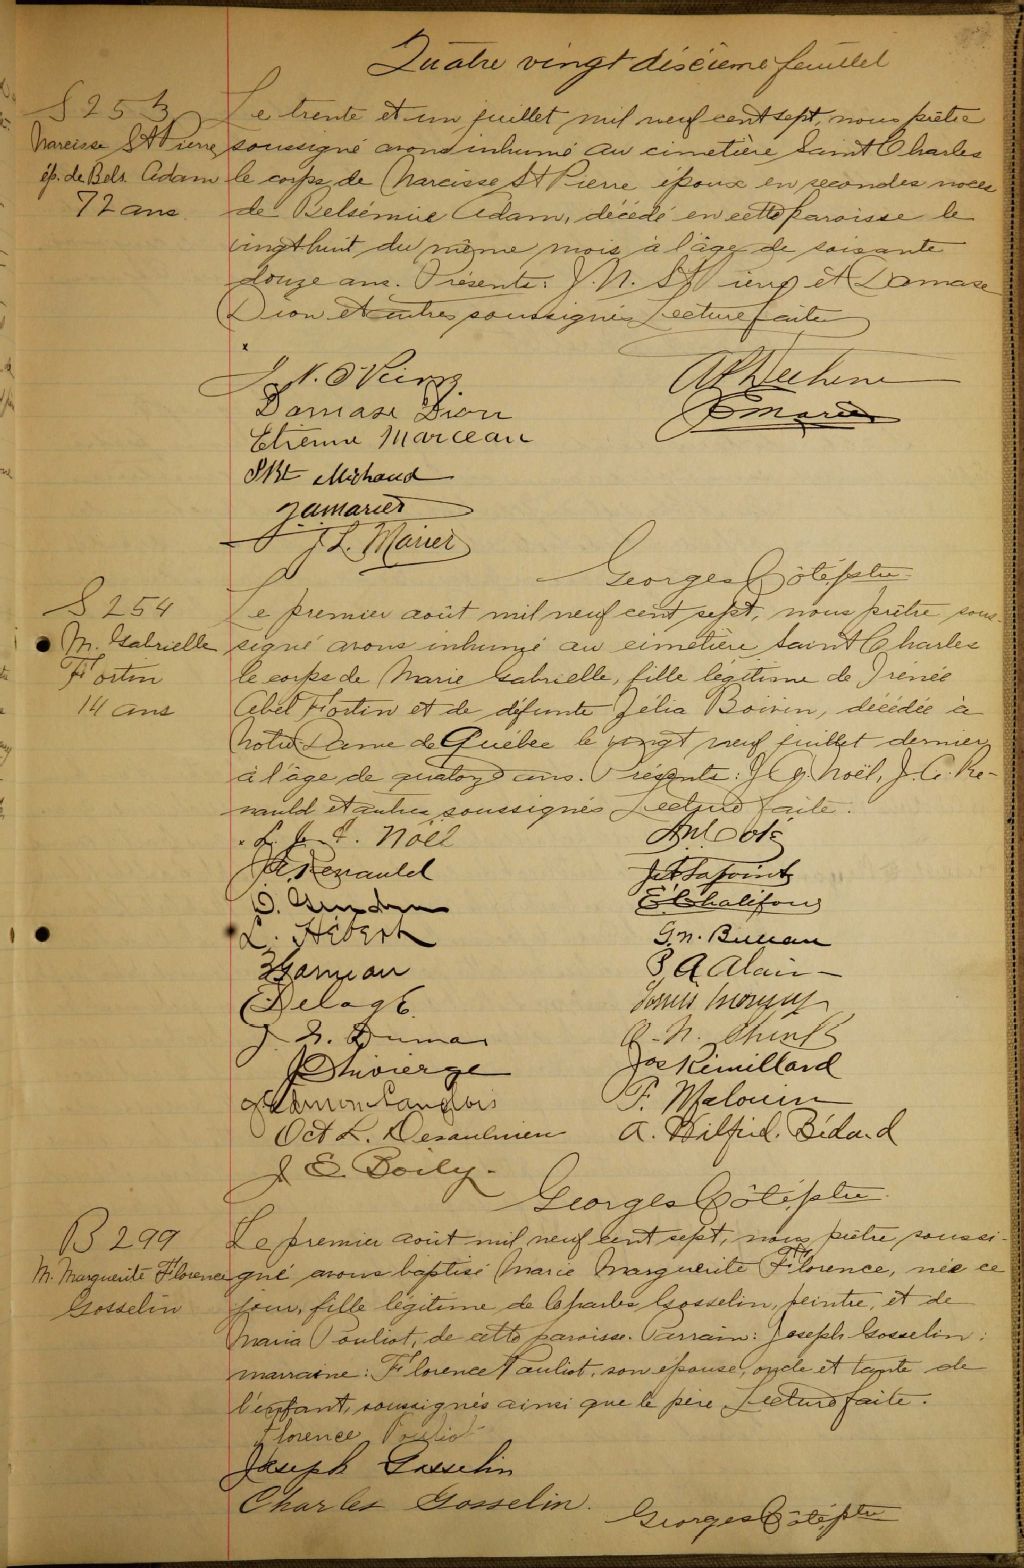 Quatre vingt dixième feuillet
S 253
Narcisse St Pierre
ép. de Bels. Adam
72 ans
Le trente et un juillet mil neuf cent sept, nous prêtre
soussigné avons inhumé au cimetière Saint Charles
le corps de Narcisse St Pierre époux en secondes noces
de Belsémire Adam, décédé en cette paroisse le
vingt huit du même mois à l'âge de soixante
douze ans. Présents: J. N. St Pierre et Damase
Dion et autres soussignés Lecture faite
Damase Dion
Etienne Marceau
Michaud
J.A. Marier
J. L. Marier
Georges Côté ptre
S 254
M. Gabrielle
Fortin
14 ans
Le premier août mil neuf cent sept, nous prêtre sous-
signé avons inhumé au cimetière Saint Charles
le corps de Marie Gabrielle, fille légitime de Irénée
Abel Fortin et de défunte Zélia Boivin, décédée à
Notre Dame de Québec le vingt neuf juillet dernier
à l'âge de quatorze ans. Présents: J. O. Noël, J. A. Re-
nauld et autres soussignés Lecture faite.
Noël
J A Renauld
L. Hébert
Garneau
Delage
J. Dumas
Lavierge
Langlois
Oct L. Desaulniers
J E Boily
Côté
J A Lapointe
E. Chalifour
G. N. Bureau
P. A Alain
Louis
Jos Rémillard
F. Malouin
A. Wilfrid. Bédard
Georges Côté ptre
B 299
M. Marguerite Florence
Gosselin
Le premier août mil neuf cent sept, nous prêtre soussi-
gné avons baptisé Marie Marguerite Florence, née ce
jour, fille légitime de Charles Gosselin, peintre, et de
Maria Pouliot, de cette paroisse. Parrain: Joseph Gosselin;
marraine: Florence Pouliot, son épouse, oncle et tante de
l'enfant, soussignés ainsi que le père Lecture faite.
Florence Pouliot
Joseph Gosselin
Charles Gosselin.
Georges Côté ptre